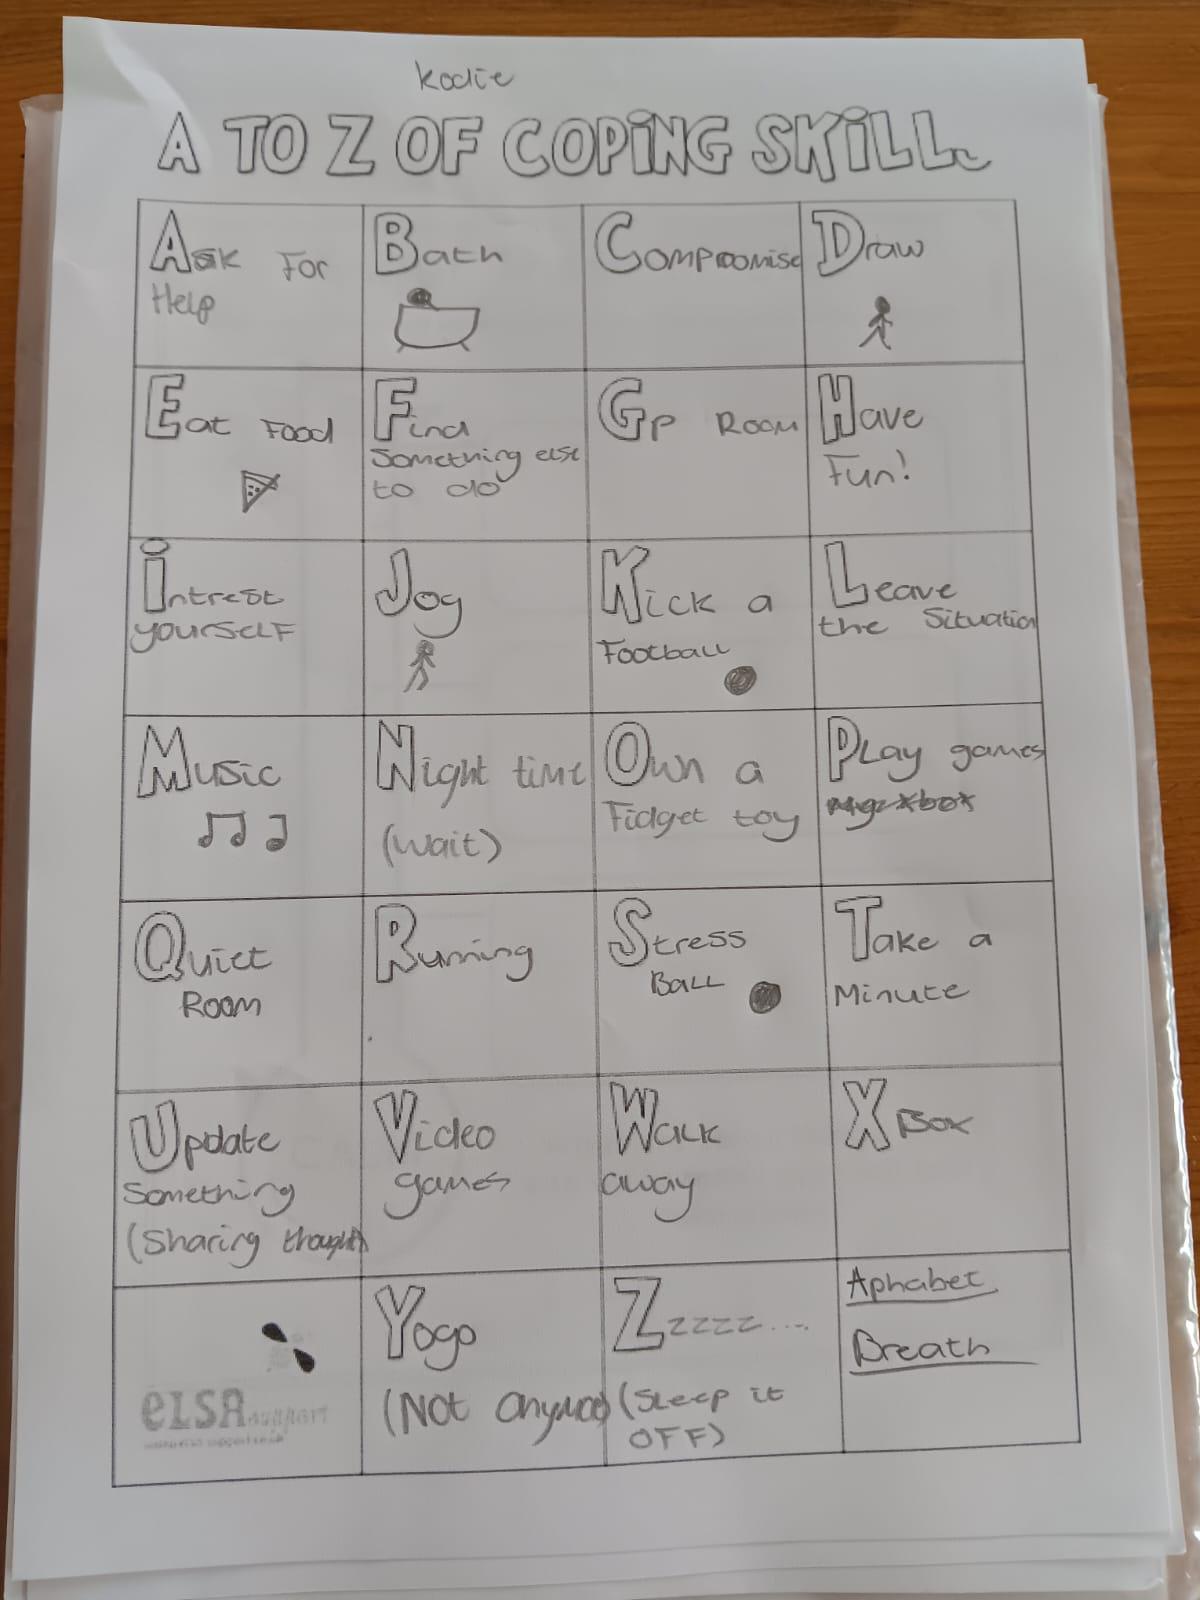 Kodie
A TO Z OF COPING SKILL
Ask For
Help
Bath
Compromise
Draw
Eat Food
Find
Something else
to do
Gp Room
Have
Fun!
Intrest
yourself
Jog
Kick a
Football
Leave
the Situation
Music
Night time
(wait)
Own a
Fidget toy
Play games
Quiet
Room
Running
Stress
Ball
Take a
Minute
Update
Something
(Sharing thought)
Video
games
Walk
away
XBox
ELSA support
Yogo
(Not
Zzzzzz....
(Sleep it
OFF)
Aphabet
Breath